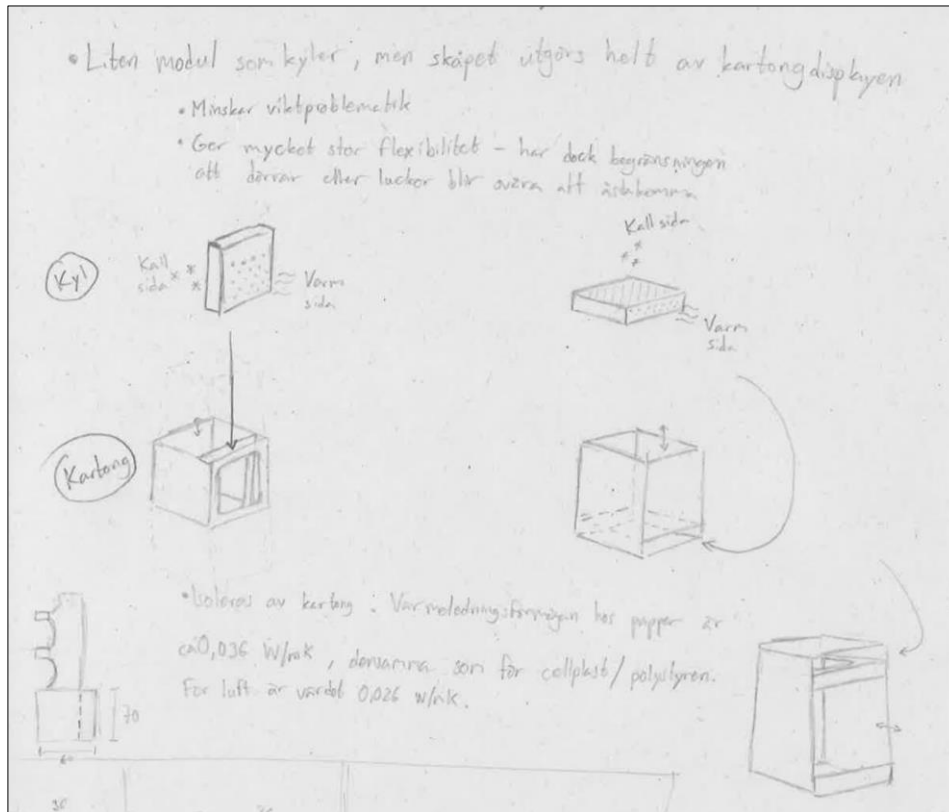 • Liten modul som kyler, men skåpet utgörs helt av kartongdisplayen
• Minskar viktproblematik
• Ger mycket stor flexibilitet – har dock begränsningen
att dörrar eller luckor blir svåra att åstadkomma
Kall sida
Kyl
Kall
sida
Varm
sida
Varm
sida
Kartong
• Isoleras av kartong. Värmeledningsförmågan hos papper är
ca 0,036 W/mK, densamma som för cellplast/polystyren.
För luft är värdet 0,026 W/mK.
70
60
30